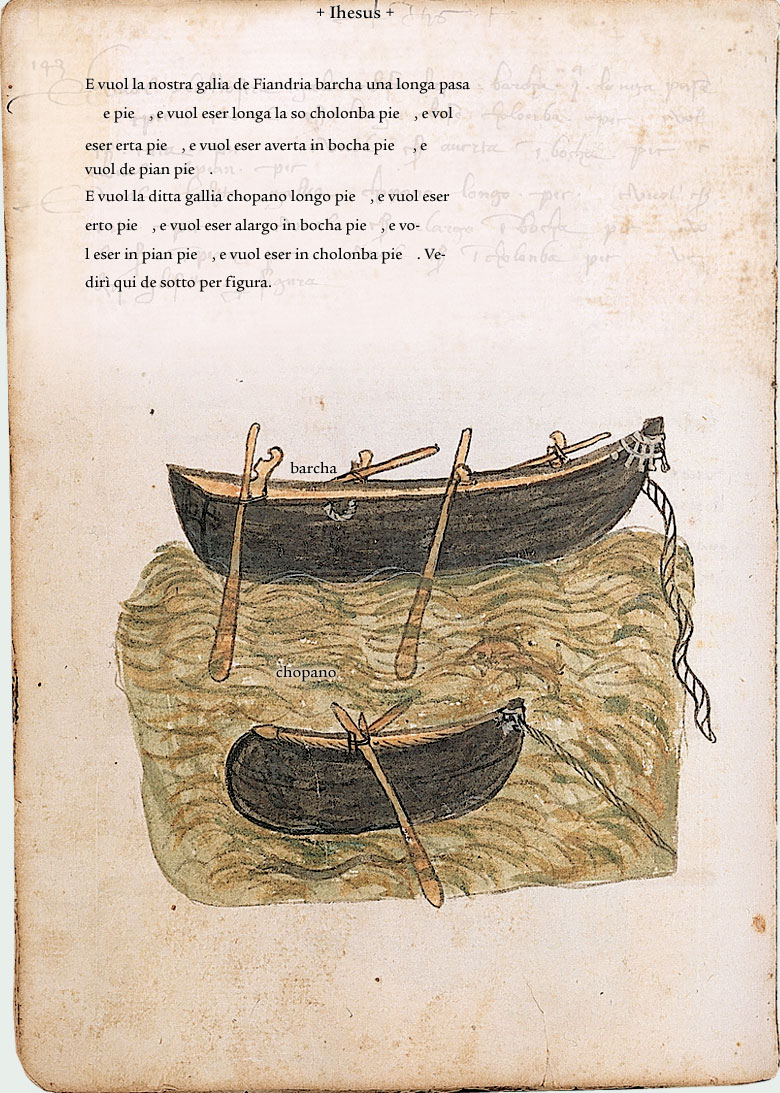 + Ihesus +
E vuol la nostra galia de Fiandria barcha una longa pasa
e pie , e vuol eser longa la so cholonba pie , e vol
eser erta pie , e vuol eser averta in bocha pie , e
vuol de pian pie .
E vuol la ditta gallia chopano longo pie , e vuol eser
erto pie , e vuol eser alargo in bocha pie , e vo-
l eser in pian pie , e vuol eser in cholonba pie . Ve-
dirì qui de sotto per figura.
barcha
chopano